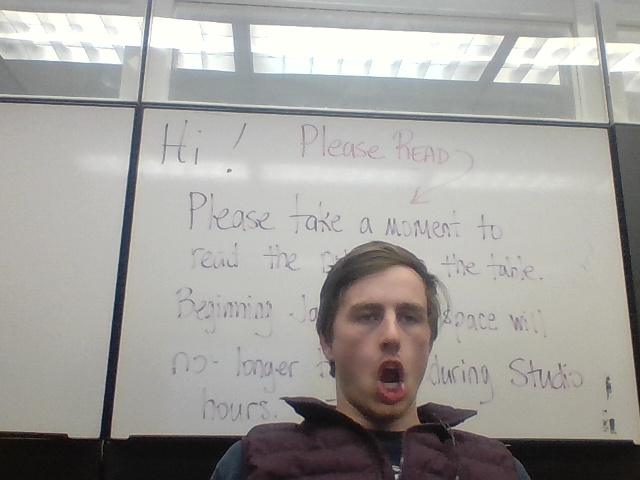 Hi! Please READ
Please take a moment to
read the the table.
Beginning space will
no-longer during Studio
hours.